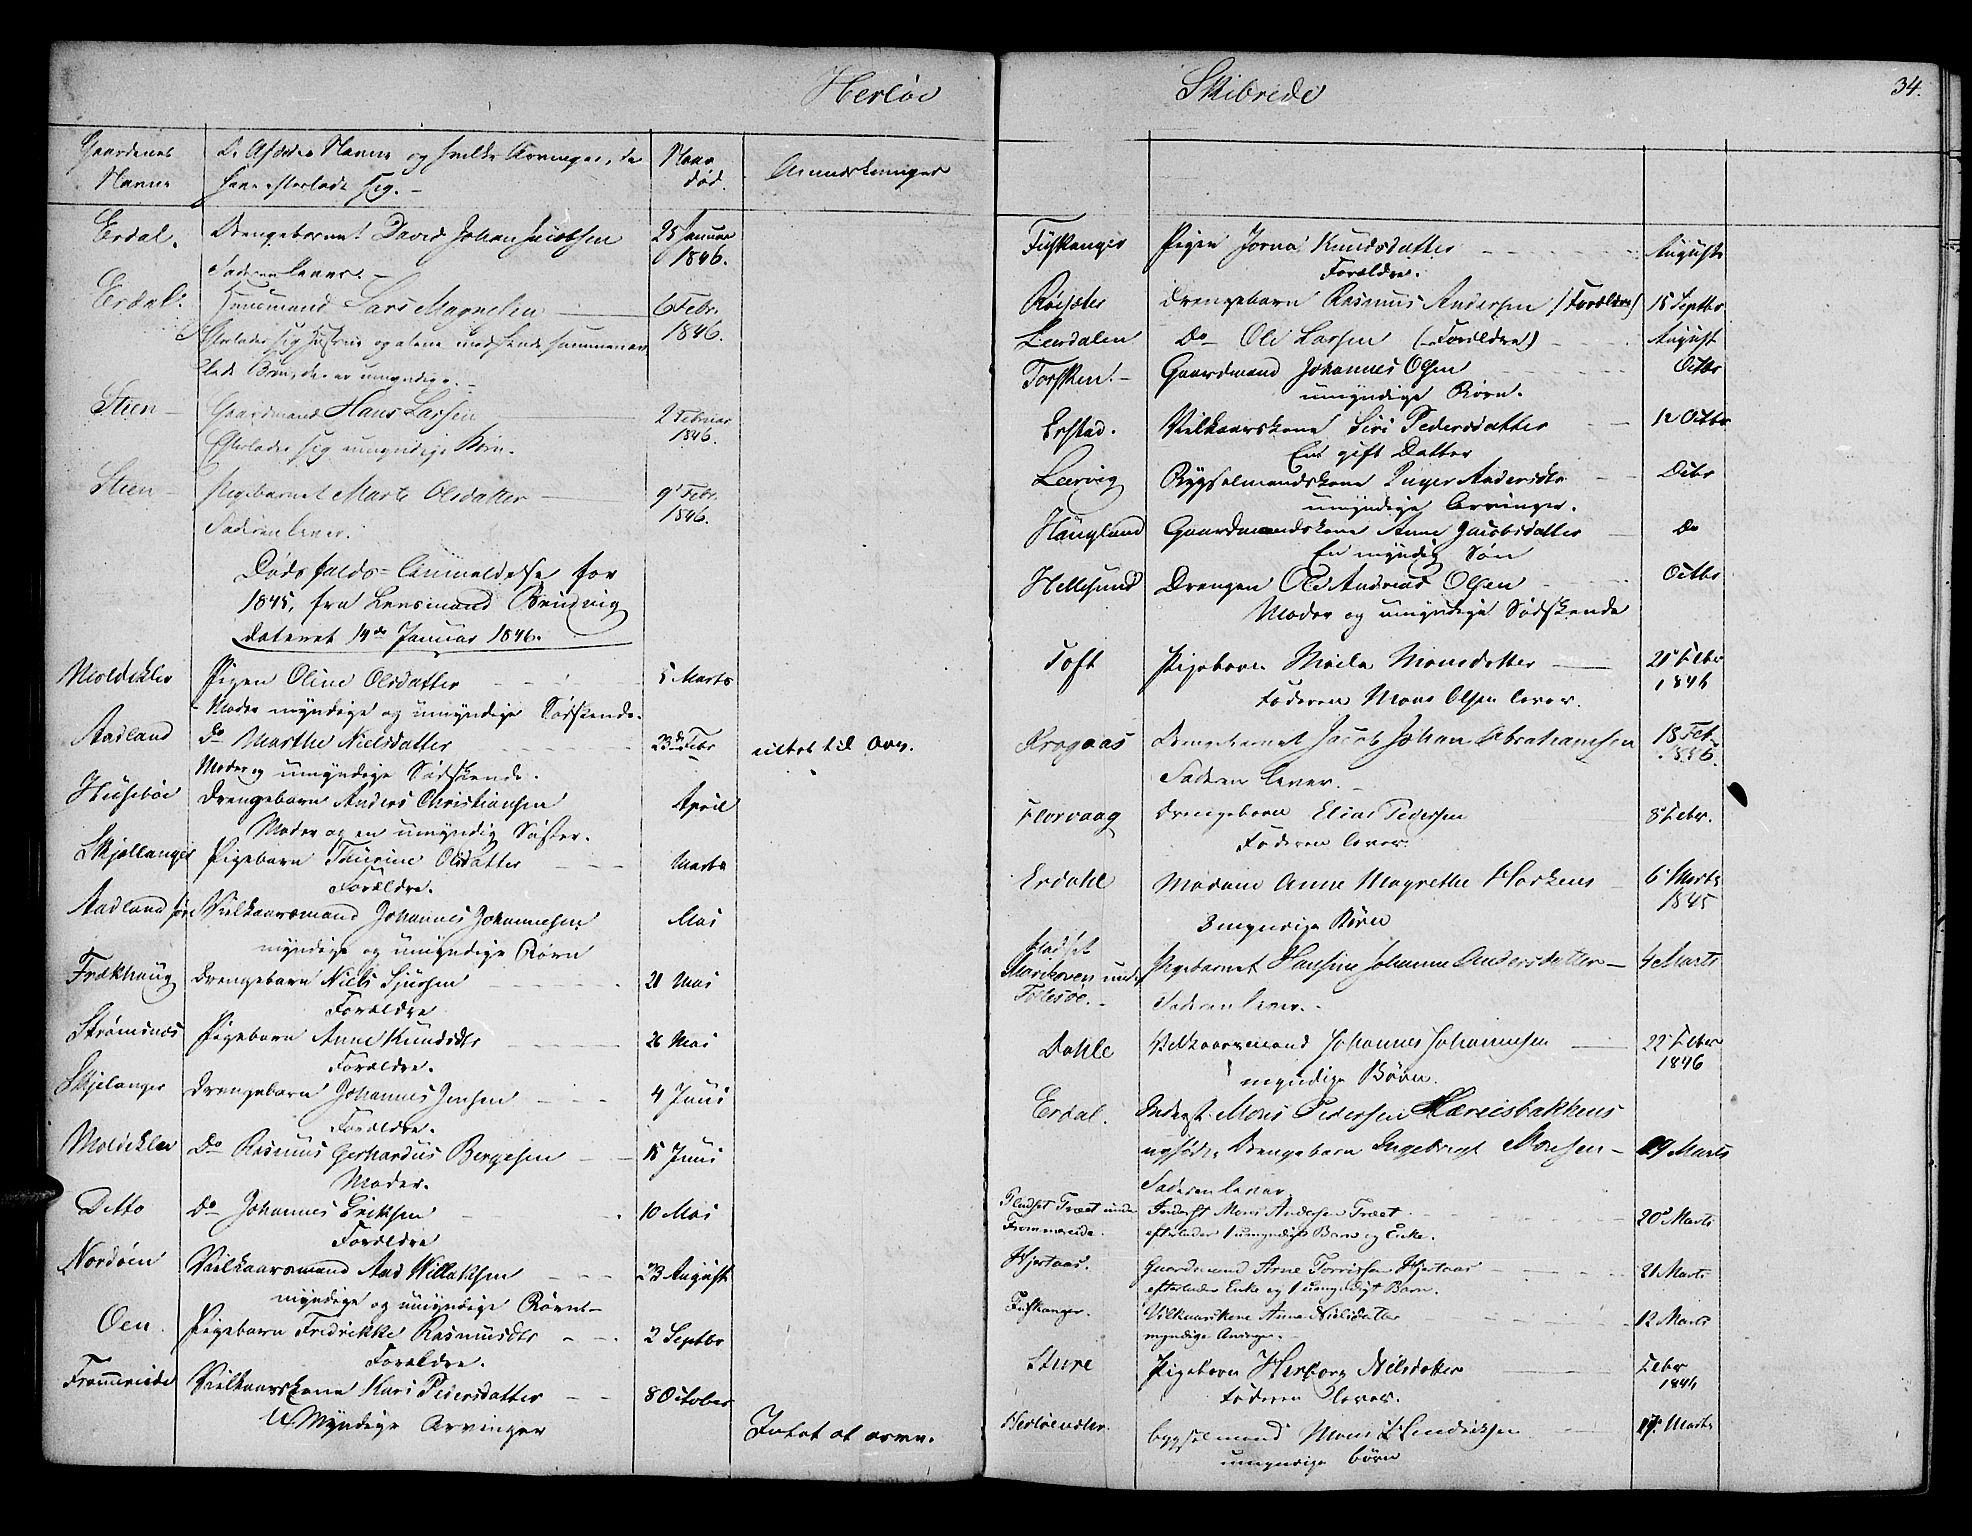 Herløe Skibrede
34.
Gaardenes Navne
De Afdødes Navne og hvilke Arvinger, de have efterladt sig. -
Naar død.
Anmærkninger
Erdal. Drengebarnet David Johan Jacobsen 25 Januar 1846.
Faderen lever. -
Erdal. Huusmand Lars Magnesen 6 Febr. 1846.
Efterlader sig Hustrue og alene med hende sammenavlede Børn, der er umyndige. -
Steen - Gaardmand Hans Larsen 2 Februar 1846.
Efterlader sig umyndige Børn.
Steen - Pigebarnet Marte Olsdatter 9 Febr. 1846.
Faderen lever.
Dødsfalds-Anmeldelse for
1845, fra Lensmand
dateret 14de Januar 1846.
Pigen Oline Olsdatter 5 Marts
Moder myndige og umyndige Sødskende.
Aadland Do Marthe Nielsdatter 23de Febr intet til Arv.
Moder og umyndige Sødskende.
Husebøe Drengebarn Anders Christiansen April
Moder og en umyndig Søster.
Skjellanger Pigebarn Thurine Olsdatter Marts
Forældre.
Aadland Vilkaarsmand Johannes Johannesen Mai
myndige og umyndige Børn
Frækhaug Drengebarn Niels Sjursen 21 Mai
Forældre
Strømsnæs Pigebarn Anne Knudsdtr 26 Mai
Forældre.
Skjelanger Drengebarn Johannes Jensen 4 Juni
Forældre.
Do Rasmus Gerhardus Bergesen 15 Juni
Moder.
Ditto Do Johannes Eriksen 10 Mai
Forældre
Nordøen Vilkaarsmand Aad Willaksen 23 August
myndige og umyndige Børn -
Oen Pigebarn Fredrikke Rasmusdtr 2 Septbr
Forældre.
Frammereide Vilkaarskone Kari Pedersdatter 8 October
Myndige Arvinger Intet at arve.
Fuskanger Pigen Jorna Knudsdatter August
Forældre.
Drengebarn Rasmus Andersen (Forældre) 18 Septbr
Leerdalen Do Ole Larsen (Forældre) August
Torsken. - Gaardmand Johannes Olsen Octbr
umyndige Børn.
Erstad. Vilkaarskone Siri Pedersdatter 12 Octbr
En gift Datter
Leervig Bygselmandskone Inger Andersdtr Octbr
umyndige Arvinger.
Haugland Gaardmandskone Anne Jacobsdatter Do
En myndig Søn
Hellesund Drengen Ole Andreas Olsen Octbr
Moder og umyndige Sødskende
Toft Pigebarn Monsdatter 21 Febr 1846
Faderen Mons Olsen lever.
Krogaas Drengebarnet Jacob Johan Abrahamsen 18 Feb. 1846.
Faderen lever. -
Florvaag Drengebarn Elias Pedersen 8 Febr.
Faderen lever.
Erdahl Madam Anne Magrethe 6 Marts 1845
3 myndige Børn
Pladset under Pigebarnet Hansine Johanne Andersdatter - 4 Marts
Faderen lever. -
Dahle Vilkaarsmand Johannes Johannesen 22 Febr 1846
myndige Børn.
Erdal. Inderst Mons Pedersen
nyfødte Drengebarn Ingebrigt Monsen - 19 Marts
Faderen lever
Pladset Træet under Frammereide. Inderst Mons Andersen Træet 20 Marts
efterlader 1 umyndigt Barn og Enke.
Hjertaas. Gaardmand Arne Torrissen Hjertaas 21 Marts
efterlader Enke og 1 umyndigt Barn.
Fuskanger. Vilkaarskone Anne Nielsdatter 12 Marts
myndige Arvinger. -
Sture Pigebarn Herborg Nilsdatter Febr 1846
Faderen lever.
Bygselmand Mons Hendriksen 17 Marts
umyndige børn